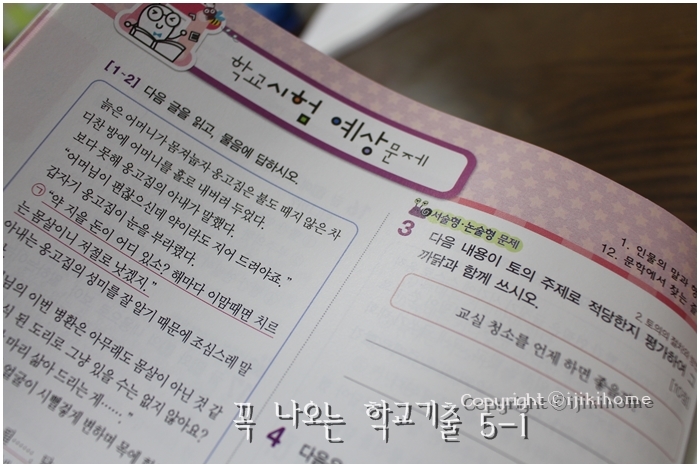 학교 시험 예상문제
[1-2] 다음 글을 읽고, 물음에 답하시오.
늙은 어머니가 몸져눕자 옹고집은 불도 때지 않은 차
디찬 방에 어머니를 홀로 내버려 두었다.
보다 못해 옹고집의 아내가 말했다.
“어머님이 편찮으신데 약이라도 지어 드려야죠.”
갑자기 옹고집이 눈을 부라렸다.
㉠“약 지을 돈이 어디 있소? 해마다 이맘때면 치르
는 몸살이니 저절로 낫겠지.”
아내는 옹고집의 성미를 잘 알기 때문에 조심스레 말
님의 이번 병환은 아무래도 몸살이 아닌 것 같
식 된 도리로 그냥 있을 수는 없지 않아요?
마리 삶아 드리는 게…….”
얼굴이 시뻘겋게 변하며 목에 핏
1. 인물의 말과
12. 문학에서 찾는
서술형·논술형 문제
2. 토의의 절차와
3 다음 내용이 토의 주제로 적당한지 평가하여
까닭과 함께 쓰시오.
교실 청소를 언제 하면 좋을
4 다음은
꼭 나오는 학교기출 5-1
Copyright ©ijikihome